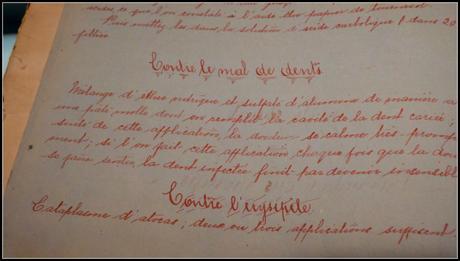 acides, ce que l'on constate à l'aide du papier de tournesol.
Puis mettez-les dans la solution d'acide carbolique 1 dans 20
filtrée
Contre le mal de dents
Mélange d'éther nitrique et sulfate d'alumine de manière à
une pâte molle dont on remplit la cavité de la dent cariée;
suite de cette application, la douleur se calme très-promp
ment; si l'on fait cette application chaque fois que la dou
se fasse sentir, la dent infectée finit par devenir insensible
Contre l'érysipèle
Cataplasme d'atocas; deux ou trois applications suffisent